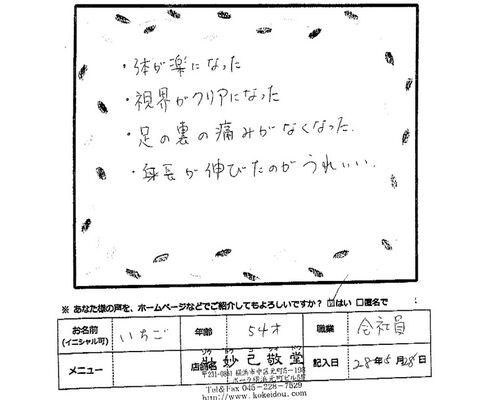 ・体が楽になった
・視界がクリアになった
・足の裏の痛みがなくなった.
・身長が伸びたのがうれしい.
※ あなた様の声を、ホームページなどでご紹介してもよろしいですか？ ☑はい ☐匿名で
お名前 (イニシャル可) いちご 年齢 54才 職業 会社員
メニュー 店舗名 妙己敬堂 記入日 28年5月28日
〒231-0861 横浜市中区元町5-198
ポーク横浜元町ビル5階
Tel&Fax 045-228-7529
http://www.kokeidou.com